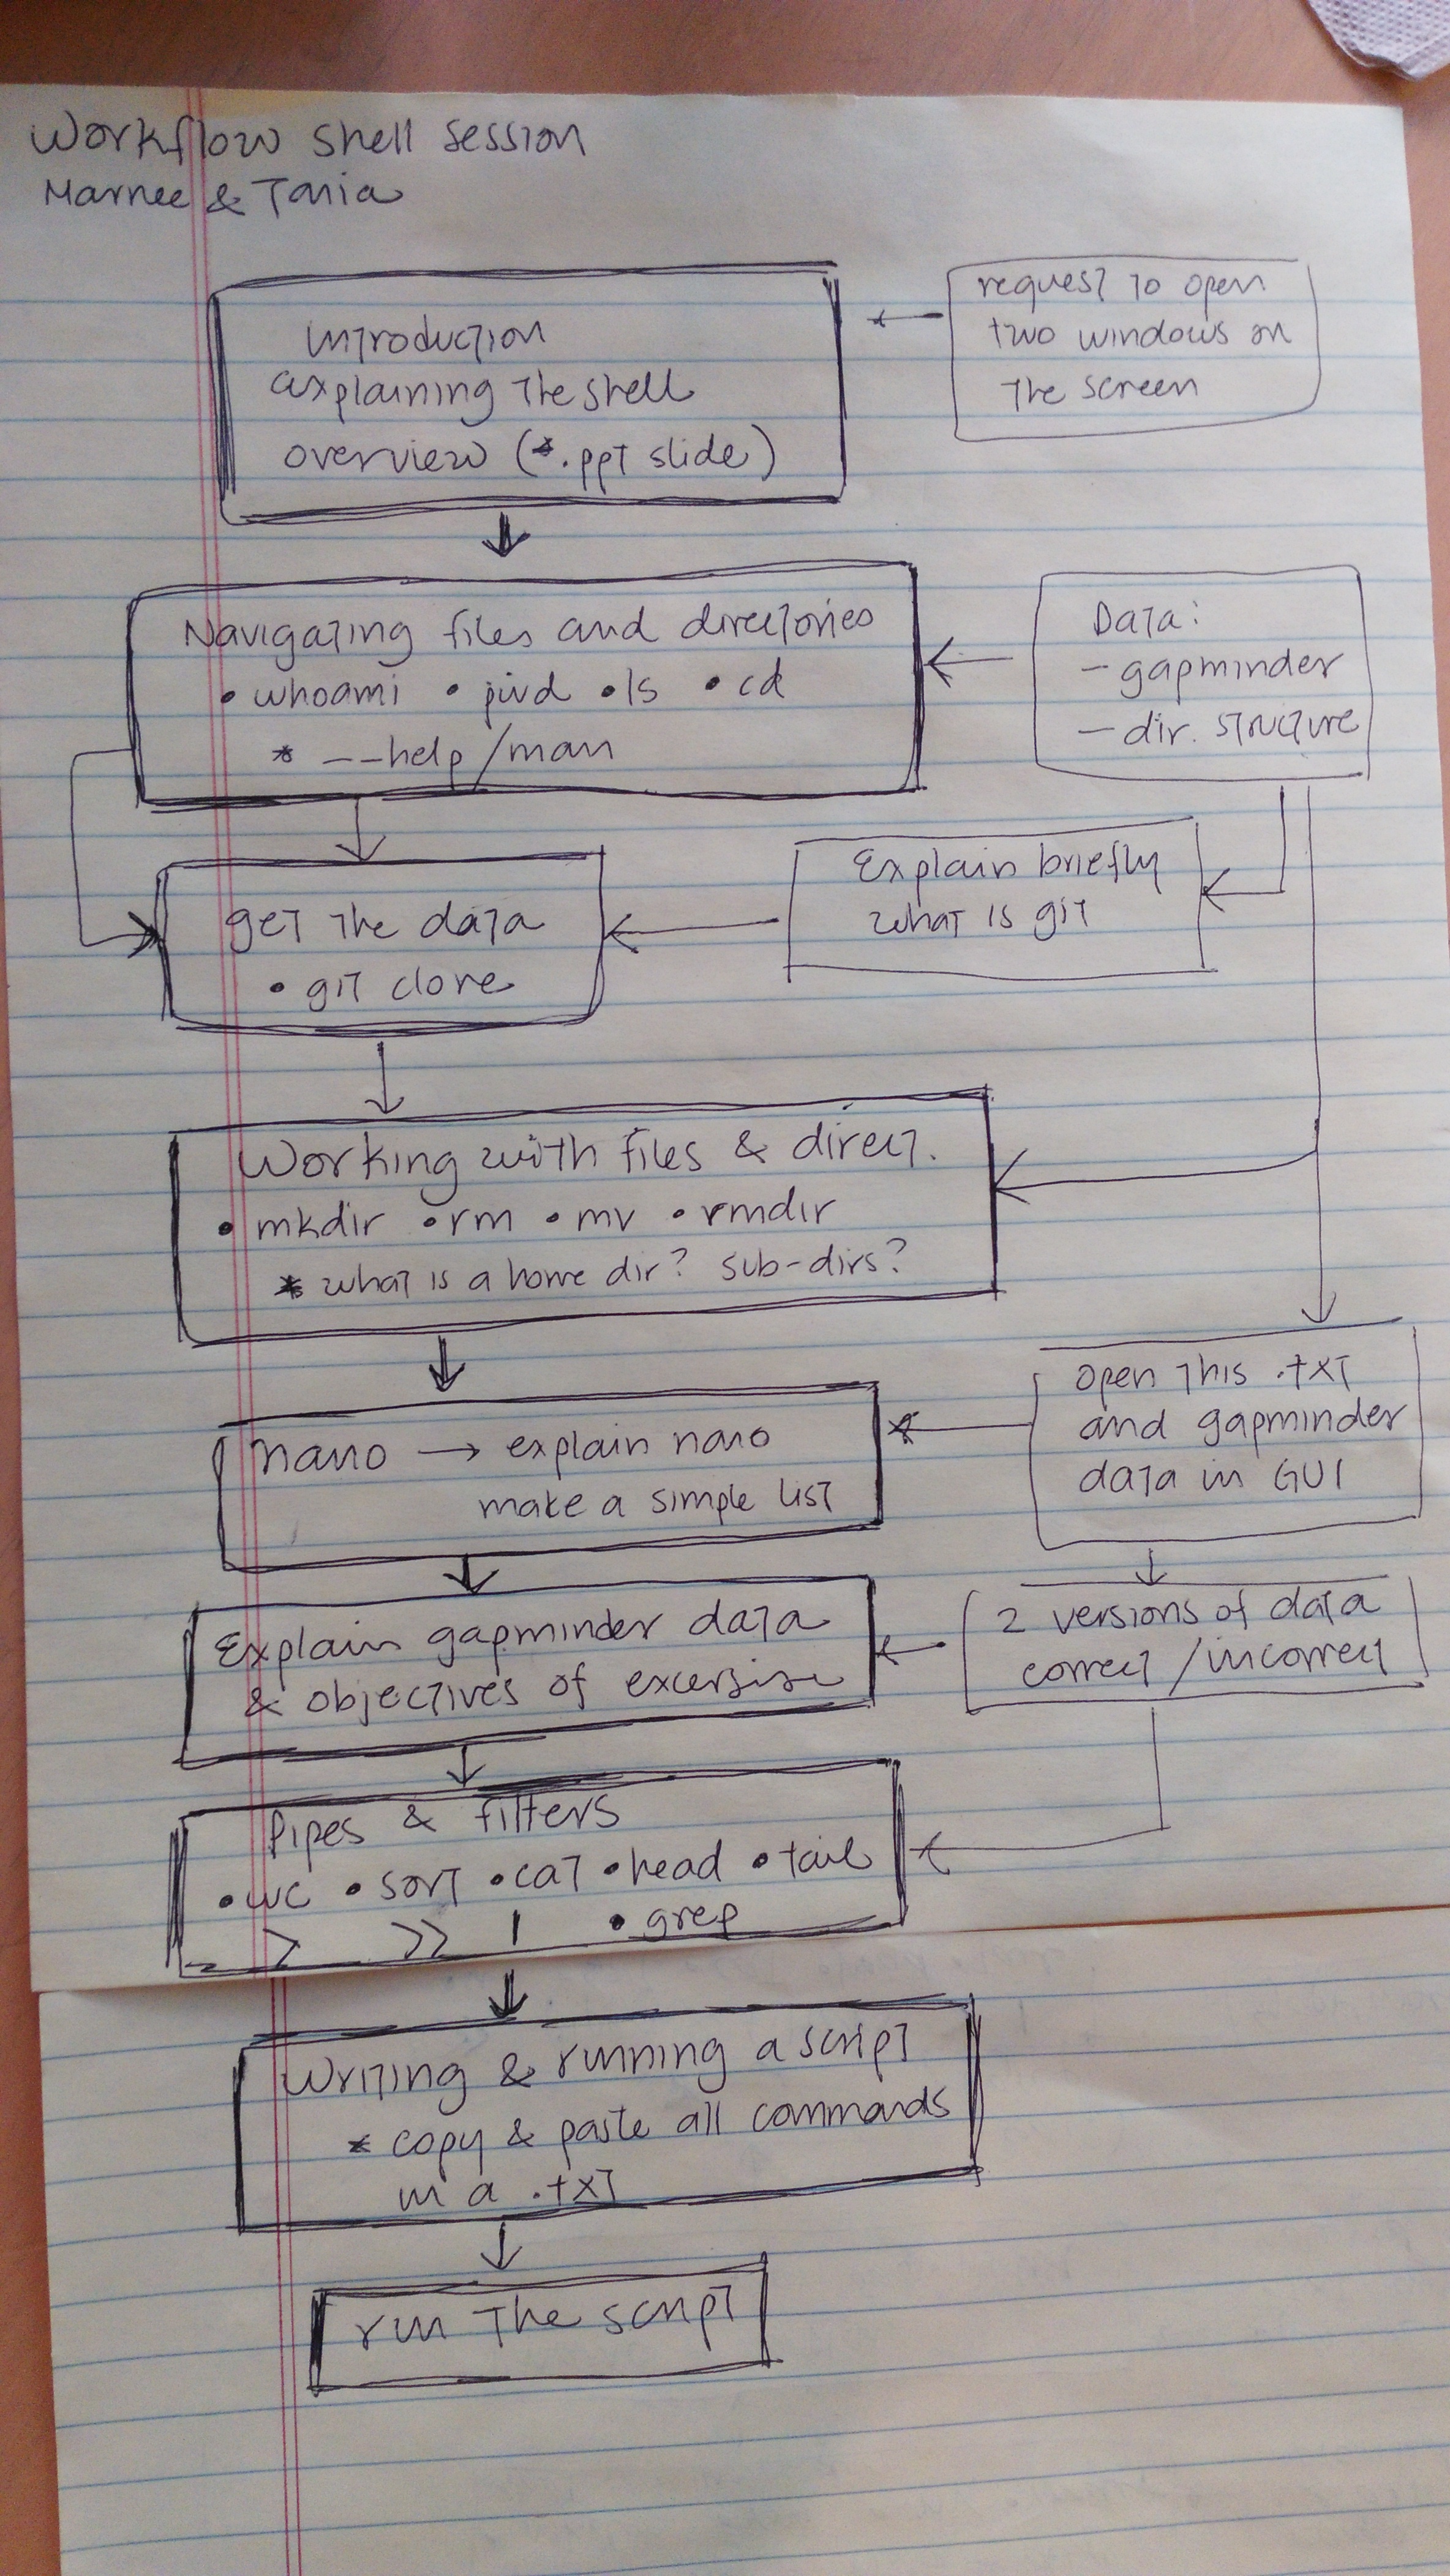 Workflow shell session
Marnee & Tania
Introduction
explaining the shell
overview (*.ppt slide)
request to open
two windows on
the screen
Navigating files and directories
• whoami • pwd • ls • cd
* --help/man
Data:
- gapminder
- dir. structure
get the data
• git clone
Explain briefly
what is git
Working with files & direct.
• mkdir • rm • mv • rmdir
* what is a home dir? sub-dirs?
nano → explain nano
make a simple list
open this .txt
and gapminder
data in GUI
Explain gapminder data
& objectives of excersise
2 versions of data
correct/incorrect
Pipes & filters
• wc • sort • cat • head • tail
> >> | • grep
Writing & running a script
* copy & paste all commands
in a .txt
run the script